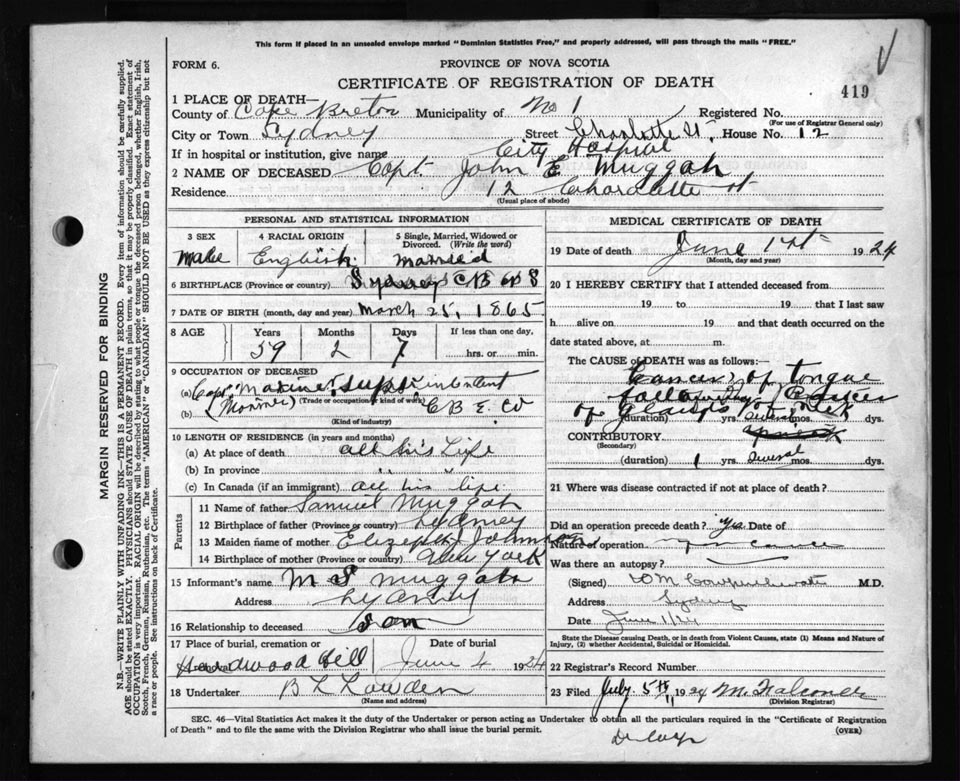 This form if placed in an unsealed envelope marked "Dominion Statistics Free," and properly addressed, will pass through the mails "FREE."
FORM 6.
PROVINCE OF NOVA SCOTIA
CERTIFICATE OF REGISTRATION OF DEATH
419
1 PLACE OF DEATH—
County of Cape Breton Municipality of No 1 Registered No.
(For use of Registrar General only)
City or Town Sydney Street Charlotte St. House No. 12
If in hospital or institution, give name City Hospital
2 NAME OF DECEASED Capt. John E. Muggah
Residence 12 Charlotte st
(Usual place of abode)
PERSONAL AND STATISTICAL INFORMATION
3 SEX
Male
4 RACIAL ORIGIN
English
5 Single, Married, Widowed or Divorced. (Write the word)
married
6 BIRTHPLACE (Province or country) Sydney CB
7 DATE OF BIRTH (month, day and year) March 25, 1865
8 AGE Years Months Days If less than one day.
59 2 7 hrs. or min.
9 OCCUPATION OF DECEASED
(a) Capt Marine Superintendent
(Mariner) (Trade or occupation or kind of work)
(b) C B E. Co
(Kind of industry)
10 LENGTH OF RESIDENCE (in years and months)
(a) At place of death all his Life
(b) In province " " "
(c) In Canada (if an immigrant) all his life
Parents
11 Name of father Samuel Muggah
12 Birthplace of father (Province or country) Sydney
13 Maiden name of mother Johnson
14 Birthplace of mother (Province or country) New York
15 Informant's name M S Muggah
Address Sydney
16 Relationship to deceased Son
17 Place of burial, cremation or removal Date of burial
Hardwood Hill June 4 1924
18 Undertaker B L Lowden
(Name and address)
MEDICAL CERTIFICATE OF DEATH
19 Date of death June 1st 1924
(Month, day and year)
20 I HEREBY CERTIFY that I attended deceased from
19 to 19 that I last saw
h alive on 19 and that death occurred on the
date stated above, at m.
The CAUSE OF DEATH was as follows:
Cancer of tongue
following Cancer
of glands of neck
(duration) yrs. several mos. dys.
CONTRIBUTORY
(Secondary)
(duration) 1 yrs. several mos. dys.
21 Where was disease contracted if not at place of death?
Did an operation precede death? Yes Date of
Nature of operation for cancer
Was there an autopsy?
(Signed) M.D.
Address Sydney
Date June 1/24
State the Disease causing Death, or in death from Violent Causes, state (1) Means and Nature of Injury, (2) whether Accidental, Suicidal or Homicidal.
22 Registrar's Record Number
23 Filed July 5th 1924 M. Falconer
(Division Registrar)
SEC. 46—Vital Statistics Act makes it the duty of the Undertaker or person acting as Undertaker to obtain all the particulars required in the "Certificate of Registration
of Death" and to file the same with the Division Registrar who shall issue the burial permit.
(OVER)
MARGIN RESERVED FOR BINDING
N.B.—WRITE PLAINLY WITH UNFADING INK—THIS IS A PERMANENT RECORD. Every item of information should be carefully supplied.
AGE should be stated EXACTLY. PHYSICIANS should STATE CAUSE OF DEATH in plain terms, so that it may be properly classified. Exact statement of
OCCUPATION is very important. RACIAL ORIGIN will be described by stating to what people or tongue the deceased person belonged, whether English, Irish,
Scotch, French, German, Russian, Ruthenian, etc. The terms "AMERICAN" or "CANADIAN" SHOULD NOT BE USED as they express citizenship but not
a race or people. See instructions on back of Certificate.